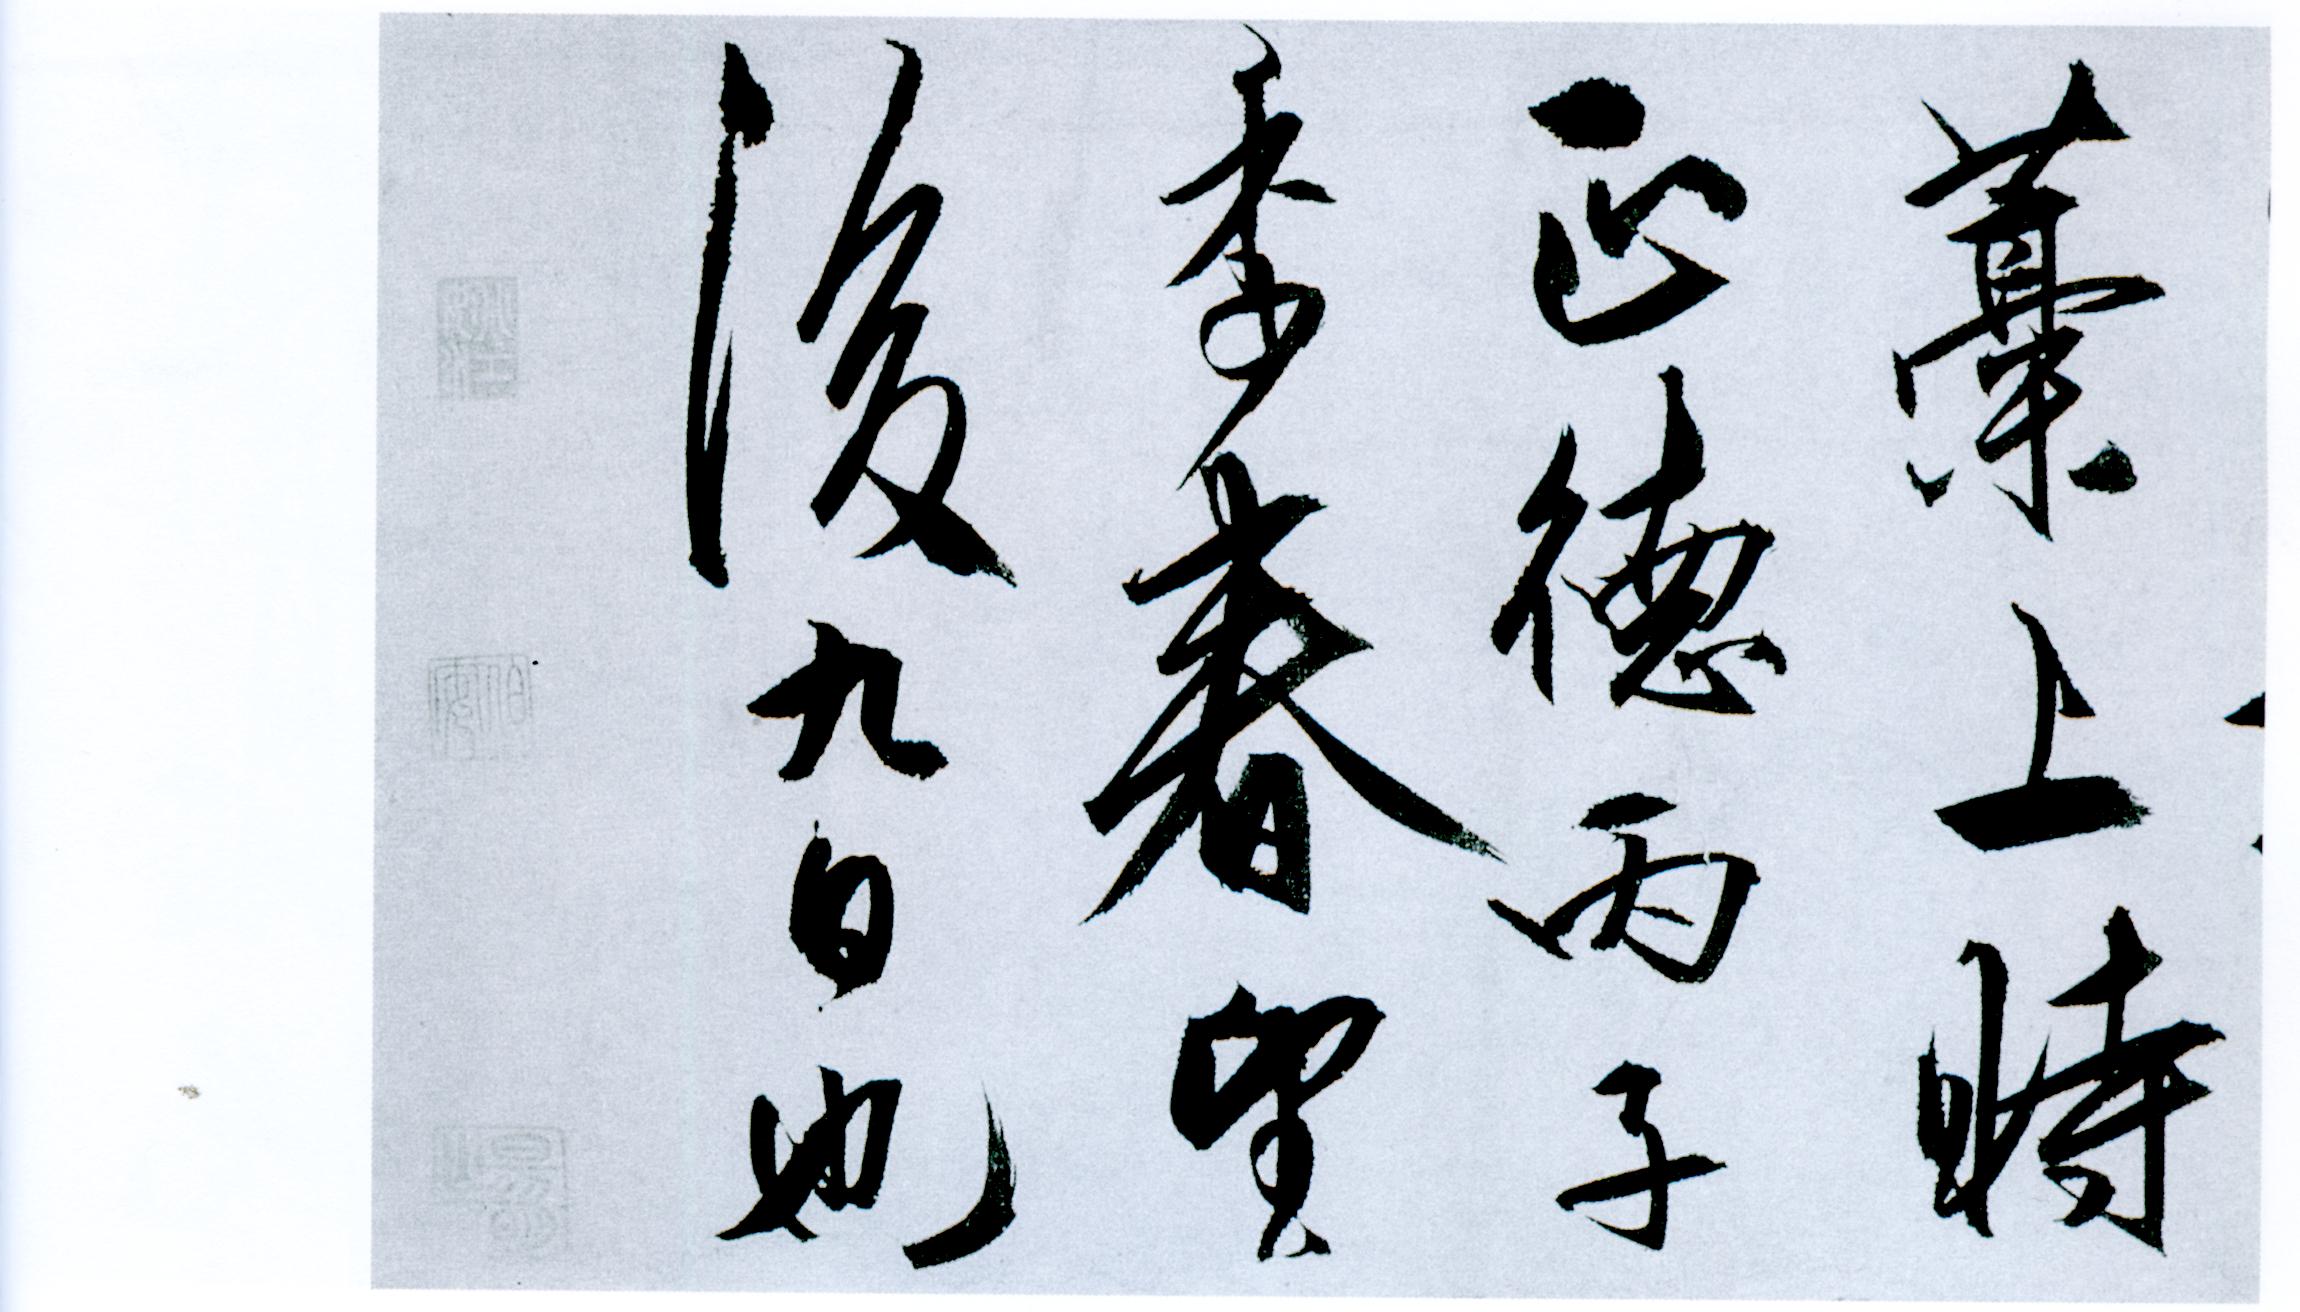 藁上時
正德丙子
季春望
後九日也